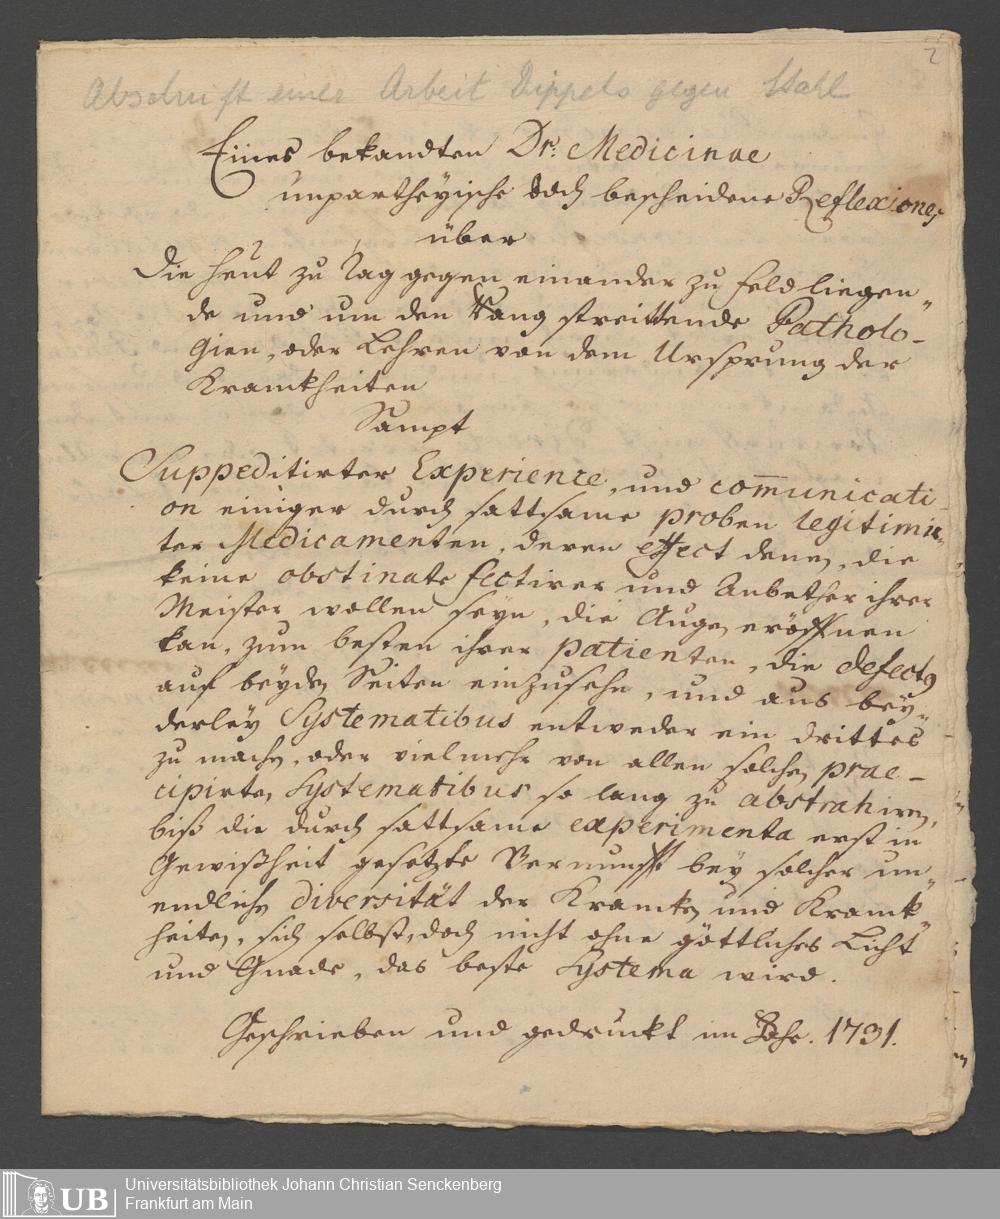 2
Abschrift einer Arbeit Dippels gegen Stahl
Eines bekandten Dr. Medicinae
unpartheyische doch bescheidene Reflexiones
über
Die heut zu Tag gegen einander zu Feld liegen„
de und um den Rang streittende Patholo-
gien, oder Lehren von dem Ursprung der
Kranckheiten
Sampt
Suppeditirter Experience, und com̄unicati-
on einiger durch sattsame proben legitimir„
ter Medicamenten, deren effect denen, die
keine obstinate Sectirer und Anbether ihrer
Meister wollen seyn, die Augen eröffnen
kan, zum besten ihrer patienten, die defectus
auf beyden Seiten einzusehn, und aus bey„
derley Systematibus entweder ein drittes
zu machen, oder vielmehr von allen solchen prae-
cipirten Systematibus so lang zu abstrahiren,
biß die durch sattsame experimenta erst in
Gewißheit gesetzte Vernunfft bey solcher un„
endlichen diversität der Krancken und Kranck„
heiten, sich selbst, doch nicht ohne göttliches Licht
und Gnade, das beste Systema wird.
Geschrieben und gedruckt im Jahr. 1731.
UB
Universitätsbibliothek Johann Christian Senckenberg
Frankfurt am Main